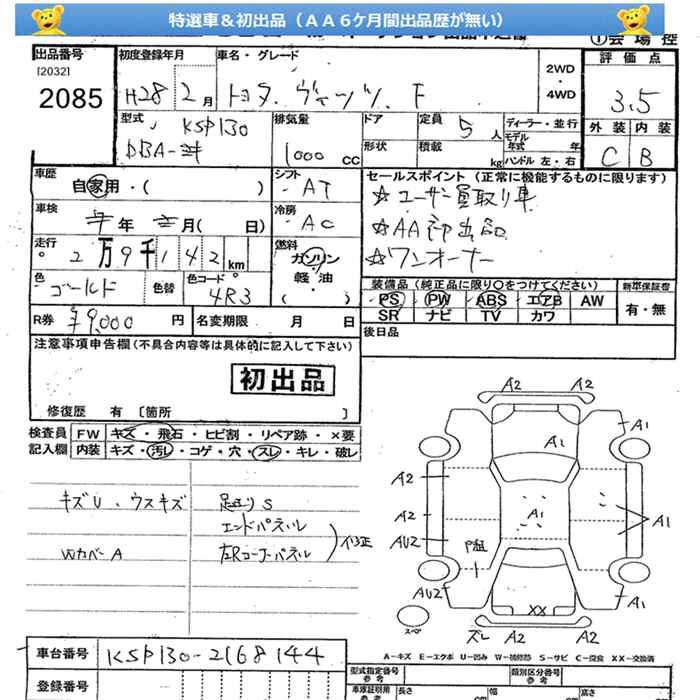 特選車&初出品（AA6ケ月間出品歴が無い）
出品番号 初度登録年月 車名・グレード ①会場控
[2032] 2WD 評価点
2085 H28 2月 トヨタ ヴィッツ F 4WD 3.5
型式 KSP130 排気量 ドア 定員 5人 ディーラー・並行 外装 内装
DBA- 1000 CC 形状 積載 kg モデル年式 年 ハンドル 左・右 C B
車歴 自家用・( ) シフト AT セールスポイント（正常に機能するものに限ります）
車検 年 月( 日) 冷房 AC ☆ユーザー買取り車
☆AA初出品
走行 2万9千142km 燃料 ガソリン 軽油・( ) ☆ワンオーナー
色 ゴールド 色替 色コード 4R3 装備品（純正品に限り○をつけてください） 新車保証書
PS PW ABS エアB AW 有・無
R券 ¥9000円 名変期限 月 日 SR ナビ TV カワ
注意事項申告欄(不具合内容等は具体的に記入して下さい) 後日品
初出品
修復歴 有 [箇所 ]
検査員 FW キズ・飛石・ヒビ割・リペア跡・×要
記入欄 内装 キズ・汚レ・コゲ・穴・スレ・キレ・破レ
キズU、ウスキズ 足廻りS
エンドパネル
WカバーA 左Rコーナーパネル 修正
A2 A2
A1
A2
A2 A1 A1
AU2
AU2 A1
XX
スペア ズレ A2 A2
A－キズ E－エクボ U－凹み W－補修跡 S－サビ C－腐食 XX－交換済
車台番号 KSP130-2168144 型式指定番号 参考 類別区分番号 参考
登録番号 車庫証明用 参考 長さ cm 幅 cm 高さ cm